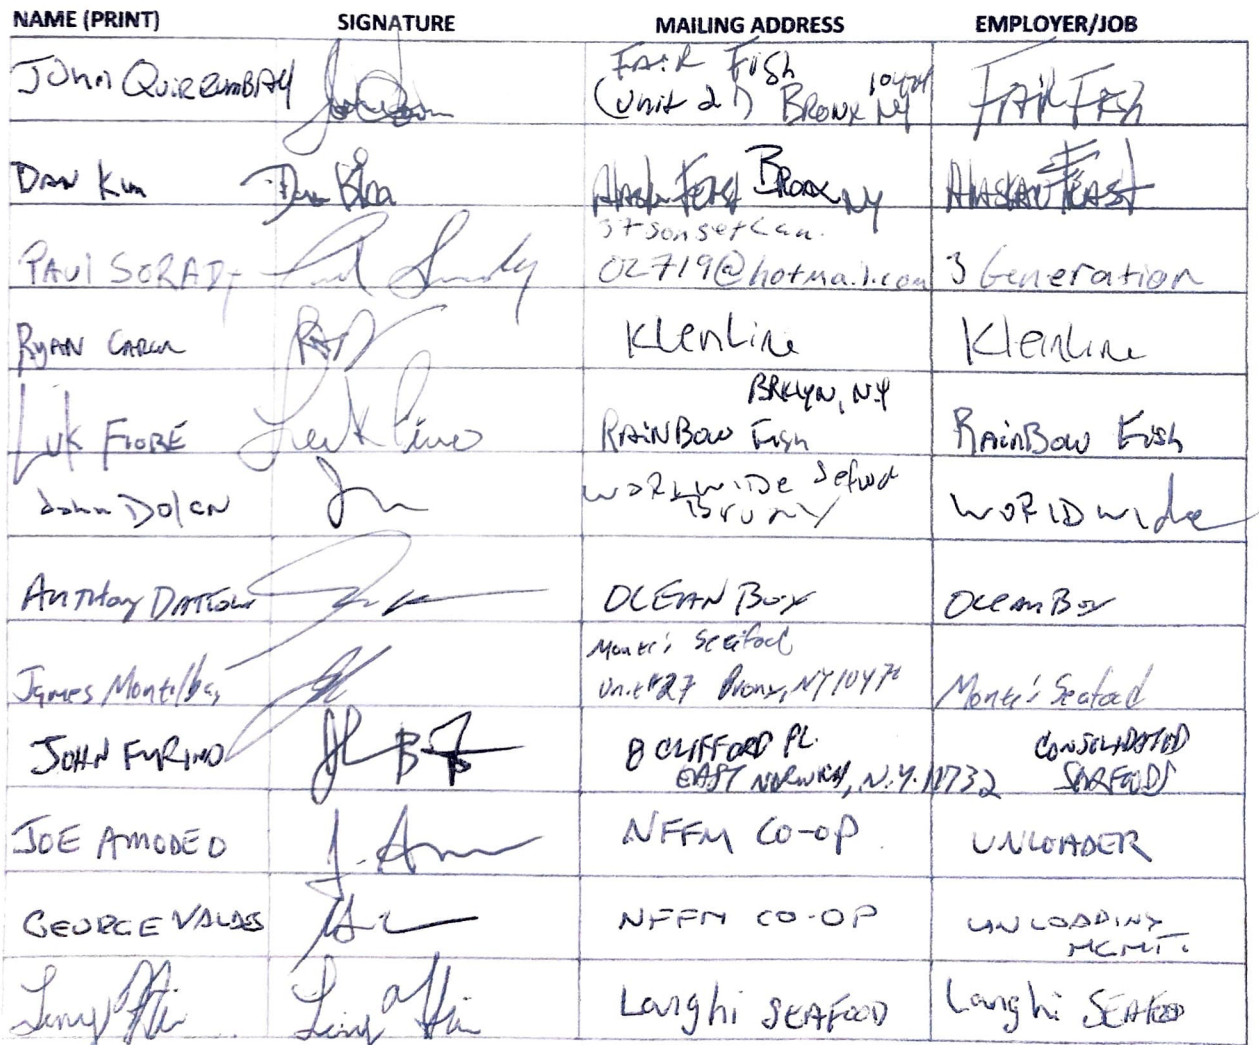 NAME (PRINT) SIGNATURE MAILING ADDRESS EMPLOYER/JOB
John QUIRRUMBAY FAIR Fish
(unit 21) BRONX NY 10474 FAIR FISH
DAN Kim Dan Kim Alaskan FEAST BRONX NY ALASKAN FEAST
PAUL SORADY 37 Sonset Lan.
02719@hotmail.com 3 Generation
RYAN Klenline Kleinline
LUK FIORE BRKLYN, NY
RAINBOW Fish RAINBOW FISH
John Dolan WORLWIDE Sefood
WORLDwide
Anthony OCEAN BOX OCEAN BOX
James Monte's Seafood
Unit #27 Bronx, NY 10474 Monte's Seafood
JOHN FURINO 8 CLIFFORD PL.
EAST NORWICH, N.Y. 11732 CONSOLIDATED
SEAFOODS
JOE AMODEO J. NFFM CO-OP UNLOADER
GEORGE VALDES NFFM CO-OP UNLOADING
MGMT.
Longhi SEAFOOD Longhi SEAFOOD